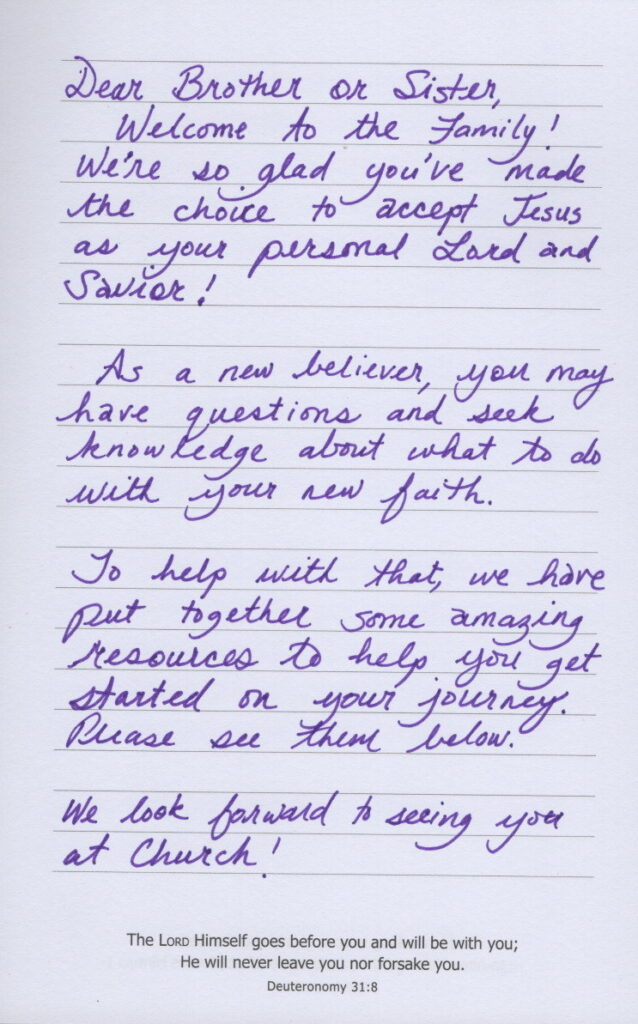 Dear Brother or Sister,
Welcome to the Family!
We're so glad you've made
the choice to accept Jesus
as your personal Lord and
Savior!
As a new believer, you may
have questions and seek
knowledge about what to do
with your new faith.
To help with that, we have
put together some amazing
resources to help you get
started on your journey.
Please see them below.
We look forward to seeing you
at Church!
The LORD Himself goes before you and will be with you;
He will never leave you nor forsake you.
Deuteronomy 31:8